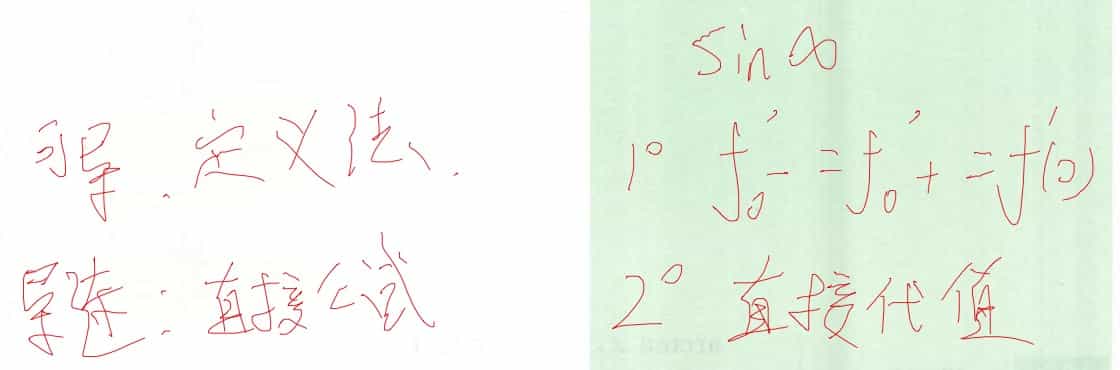 可导.定义法.
导连:直接公试
sin ∞
1° f'₀₋ = f'₀₊ = f'(0)
2° 直接代值